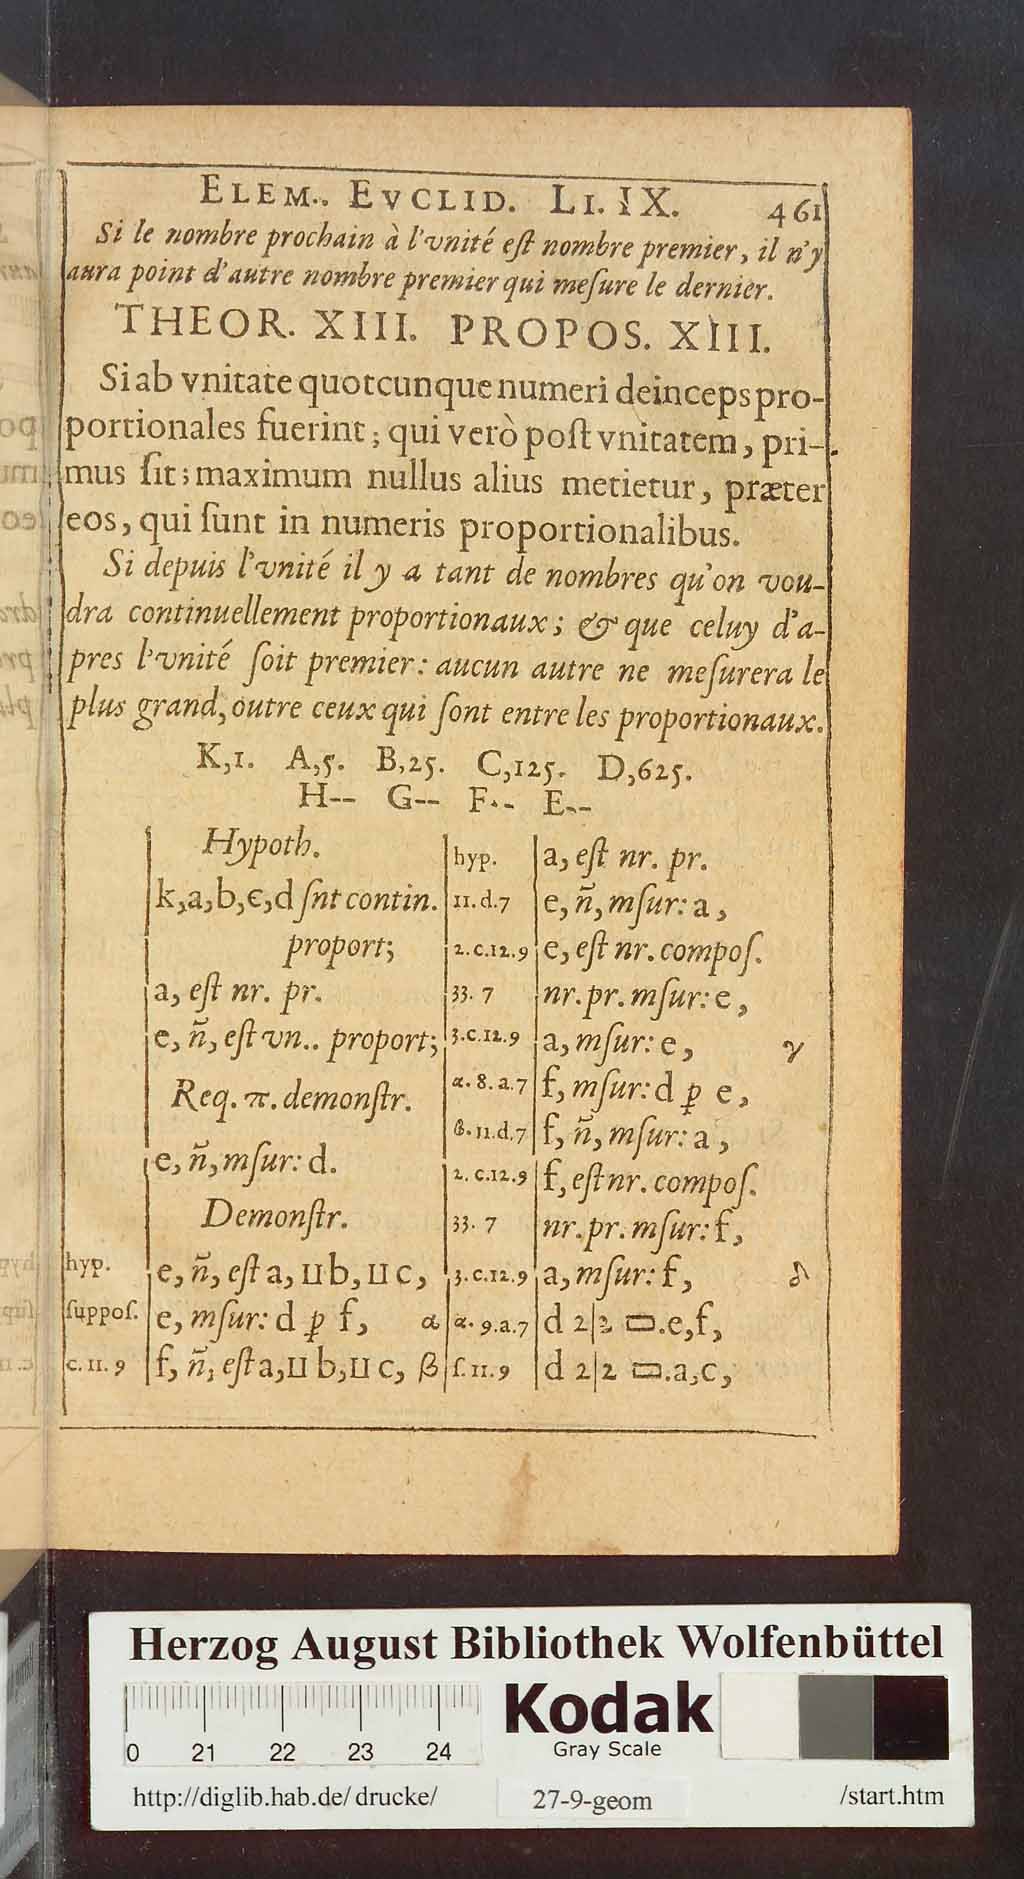 ELEM.. EVCLID. LI. IX. 461
Si le nombre prochain à l'vnité eſt nombre premier, il n'y
aura point d'autre nombre premier qui meſure le dernier.
THEOR. XIII. PROPOS. XIII.
Si ab vnitate quotcunque numeri deinceps pro-
portionales fuerint; qui verò poſt vnitatem, pri-
mus ſit; maximum nullus alius metietur, præter
eos, qui ſunt in numeris proportionalibus.
Si depuis l'vnité il y a tant de nombres qu'on vou-
dra continuellement proportionaux; & que celuy d'a-
pres l'vnité ſoit premier: aucun autre ne meſurera le
plus grand, outre ceux qui ſont entre les proportionaux.
K,1. A,5. B,25. C,125. D,625.
H-- G-- F-- E--
Hypoth.
k,a,b,c,d ſnt contin.
proport;
a, eſt nr. pr.
e, ñ, eſt vn.. proport;
Req. π. demonſtr.
e, ñ, mſur: d.
Demonſtr.
hyp. e, ñ, eſt a, ⊔ b, ⊔ c,
ſuppoſ. e, mſur: d ꝑ f, α
c. 11. 9 f, ñ, eſt a, ⊔ b, ⊔ c, β
hyp. a, eſt nr. pr.
11.d.7 e, ñ, mſur: a,
2.c.12.9 e, eſt nr. compoſ.
33. 7 nr. pr. mſur: e,
3.c.12.9 a, mſur: e, γ
α. 8. a.7 f, mſur: d ꝑ e,
β. 11.d.7 f, ñ, mſur: a,
2. c.12.9 f, eſt nr. compoſ.
33. 7 nr. pr. mſur: f,
3.c.12.9 a, mſur: f, δ
α. 9.a.7 d 2|2 ▭.e,f,
ſ. 11. 9 d 2|2 ▭.a,c,
Herzog August Bibliothek Wolfenbüttel
0 21 22 23 24
Kodak
Gray Scale
http://diglib.hab.de/ drucke/ 27-9-geom /start.htm